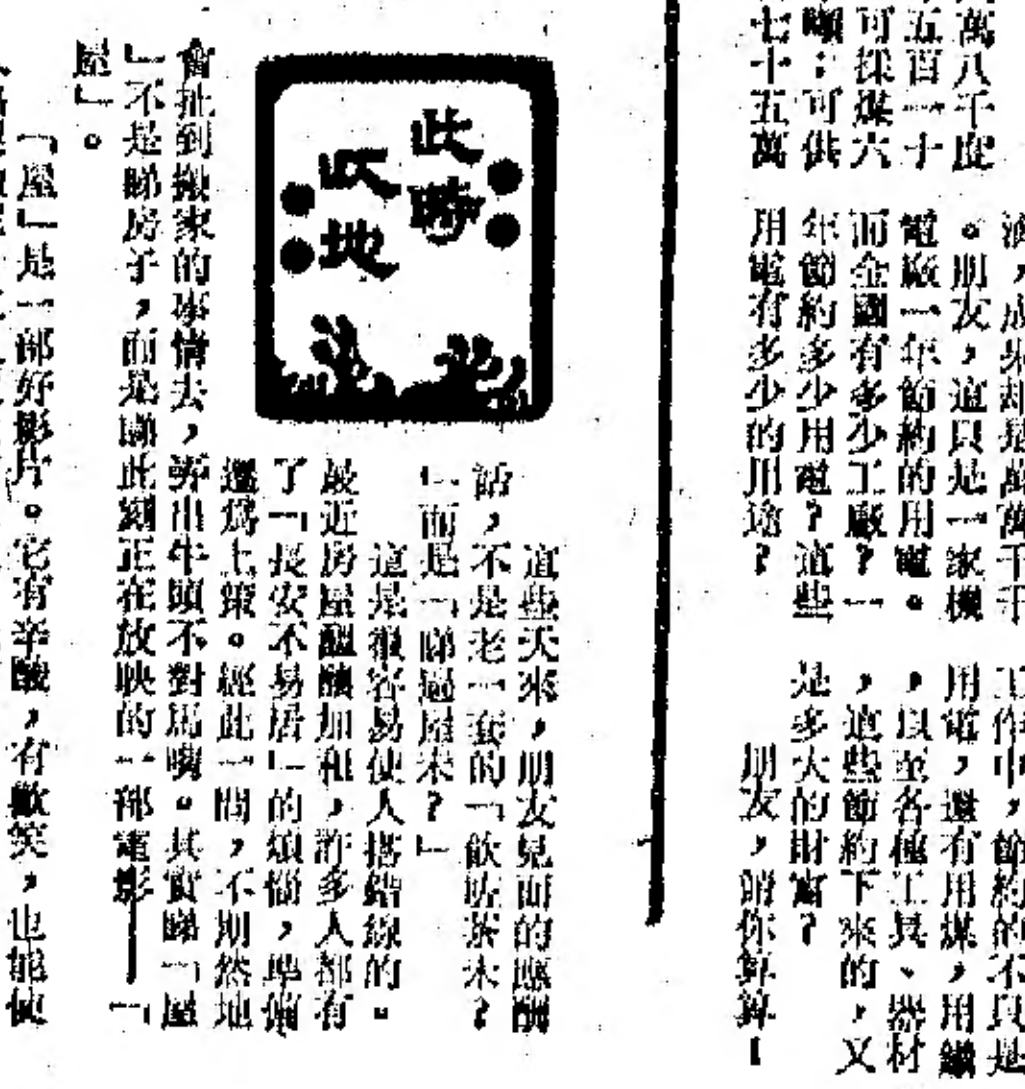 萬八千度
五百一十
可採煤六
噸；可供
七十五萬
，成果却是萬萬千千
。朋友，這只是一家機
電廠一年節約的用電。
而全國有多少工廠？一
年節約多少用電？這些
用電有多少的用途？
工作中，節約的不只是
用電，還有用煤，用鐵
，以至各種工具、器材
，這些節約下來的，又
是多大的財富？
朋友，請你算算！
此時
此地
這些天來，朋友見面的應酬
話，不是老一套的「飲咗茶未？
」而是「睇過屋未？」
這是很容易使人搭錯線的。
最近房屋醞釀加租，許多人都有
了「長安不易居」的煩惱，準備
遷爲上策。經此一問，不期然地
會扯到搬家的事情去，弄出牛頭不對馬嘴。其實睇「屋
」不是睇房子，而是睇此刻正在放映的一部電影——「
屋」。
「屋」是一部好影片。它有辛酸，有歡笑，也能使